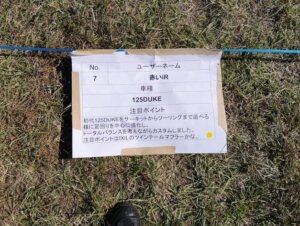 No. ユーザーネーム
7 赤いR
車種
125DUKE
注目ポイント
初代125DUKEをサーキットからツーリングまで遊べる
様に足回りを中心に強化し、
トータルバランスを考えながらカスタムしました。
注目ポイントはIXILのツインテールマフラーかな。